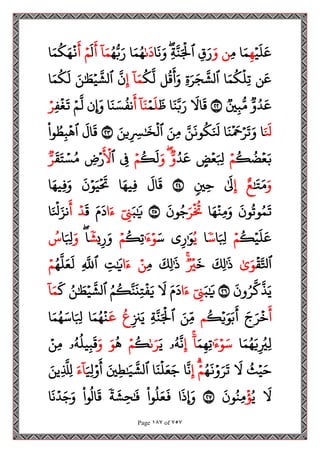 عَلَيْهِمَا مِن وَرَقِ ٱلْجَنَّةِ ۖ وَنَادَىٰهُمَا رَبُّهُمَآ أَلَمْ أَنْهَكُمَا
عَن تِلْكُمَا ٱلشَّجَرَةِ وَأَقُل لَّكُمَآ إِنَّ ٱلشَّيْطَٰنَ لَكُمَا
عَدُوٌّ مُّبِينٌ ٢٢ قَالَا رَبَّنَا ظَلَمْنَآ أَنفُسَنَا وَإِن لَّمْ تَغْفِرْ
لَنَا وَتَرْحَمْنَا لَنَكُونَنَّ مِنَ ٱلْخَٰسِرِينَ ٢٣ قَالَ ٱهْبِطُوا۟
بَعْضُكُمْ لِبَعْضٍ عَدُوٌّ ۖ وَلَكُمْ فِى ٱلْأَرْضِ مُسْتَقَرٌّ
وَمَتَٰعٌ إِلَىٰ حِينٍ ٢٤ قَالَ فِيهَا تَحْيَوْنَ وَفِيهَا
تَمُوتُونَ وَمِنْهَا تُخْرَجُونَ ٢٥ يَٰبَنِىٓ ءَادَمَ قَدْ أَنزَلْنَا
عَلَيْكُمْ لِبَاسًا يُوَٰرِى سَوْءَٰتِكُمْ وَرِيشًا ۖ وَلِبَاسُ
ٱلتَّقْوَىٰ ذَٰلِكَ خَيْرٌ ۚ ذَٰلِكَ مِنْ ءَايَٰتِ ٱللَّهِ لَعَلَّهُمْ
يَذَّكَّرُونَ ٢٦ يَٰبَنِىٓ ءَادَمَ لَا يَفْتِنَنَّكُمُ ٱلشَّيْطَٰنُ كَمَآ
أَخْرَجَ أَبَوَيْكُم مِّنَ ٱلْجَنَّةِ يَنزِعُ عَنْهُمَا لِبَاسَهُمَا
لِيُرِيَهُمَا سَوْءَٰتِهِمَآ ۚ إِنَّهُۥ يَرَىٰكُمْ هُوَ وَقَبِيلُهُۥ مِنْ
حَيْثُ لَا تَرَوْنَهُمْ ۗ إِنَّا جَعَلْنَا ٱلشَّيَٰطِينَ أَوْلِيَآءَ لِلَّذِينَ
لَا يُؤْمِنُونَ ٢٧ وَإِذَا فَعَلُوا۟ فَٰحِشَةً قَالُوا۟ وَجَدْنَا
Page ١٨٧ of ٧٥٧